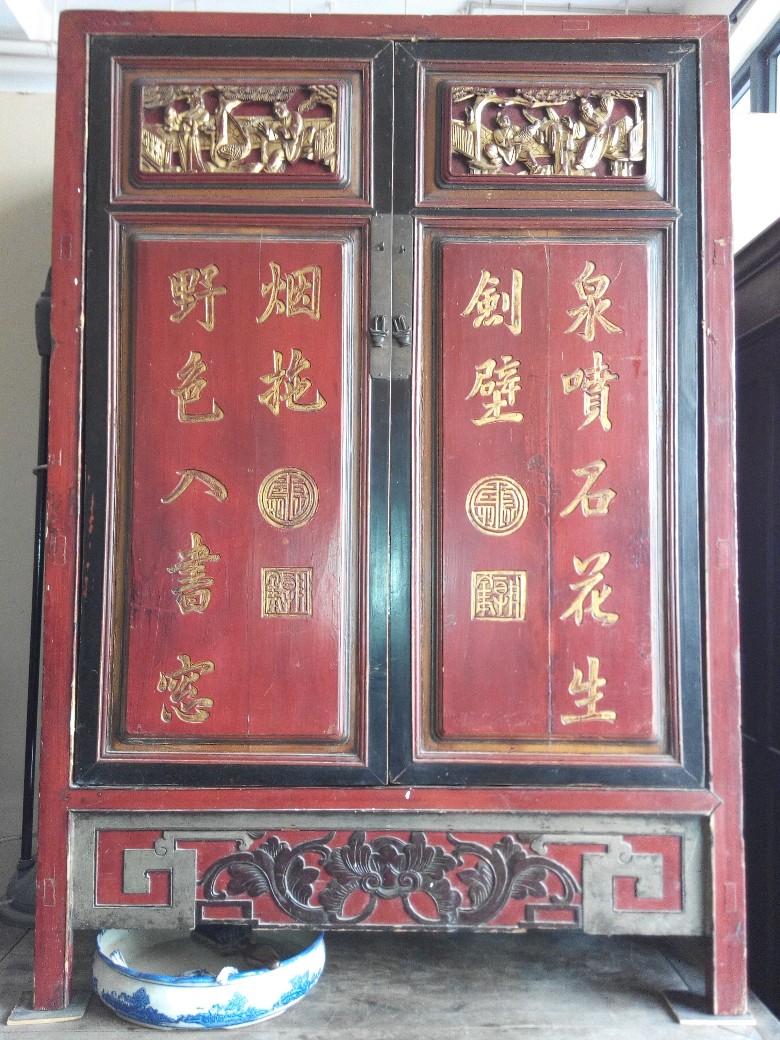 泉噴石花生
劍壁
烟拖
野色入書窓